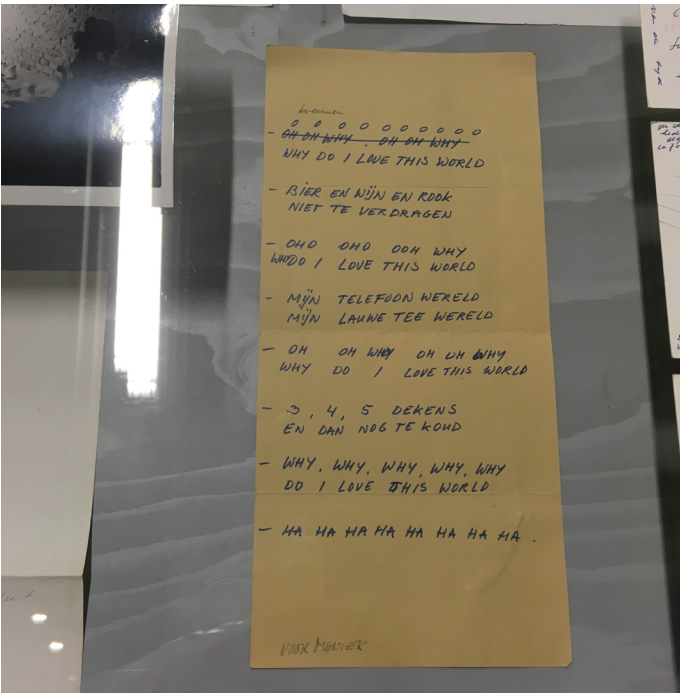 o o o o o o o o o
- OH OH WHY . OH OH WHY
WHY DO I LOVE THIS WORLD
- BIER EN WIJN EN ROOK
NIET TE VERDRAGEN
- OHO OHO OOH WHY
WHY DO I LOVE THIS WORLD
- MIJN TELEFOON WERELD
MIJN LAUWE TEE WERELD
- OH OH WHY OH OH WHY
WHY DO I LOVE THIS WORLD
- 3, 4, 5 DEKENS
EN DAN NOG TE KOUD
- WHY, WHY, WHY, WHY, WHY
DO I LOVE THIS WORLD
- HA HA HA HA HA HA HA HA .
VOOR